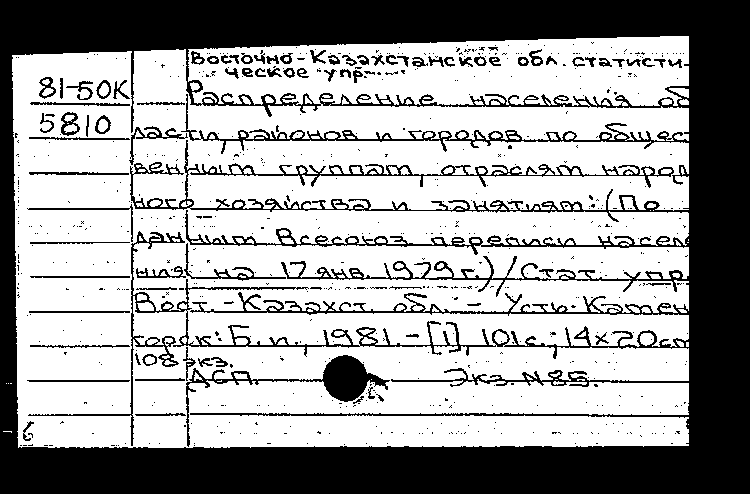 Восточно-Казахстанское обл. статисти-
ческое упр.
81-50К
Распределение населения об
5810
ласти, районов и городов по общест
венным группам, отраслям народ
ного хозяйства и занятиям: (По
данным Всесоюз. переписи населе
ния на 17 янв. 1979 г.) / Стат. упр.
Вост.-Казахст. обл. - Усть-Камен
горск: Б. и., 1981. - [1], 101 с.; 14×20см
108 экз.
ДСП. Экз. N 85.
6